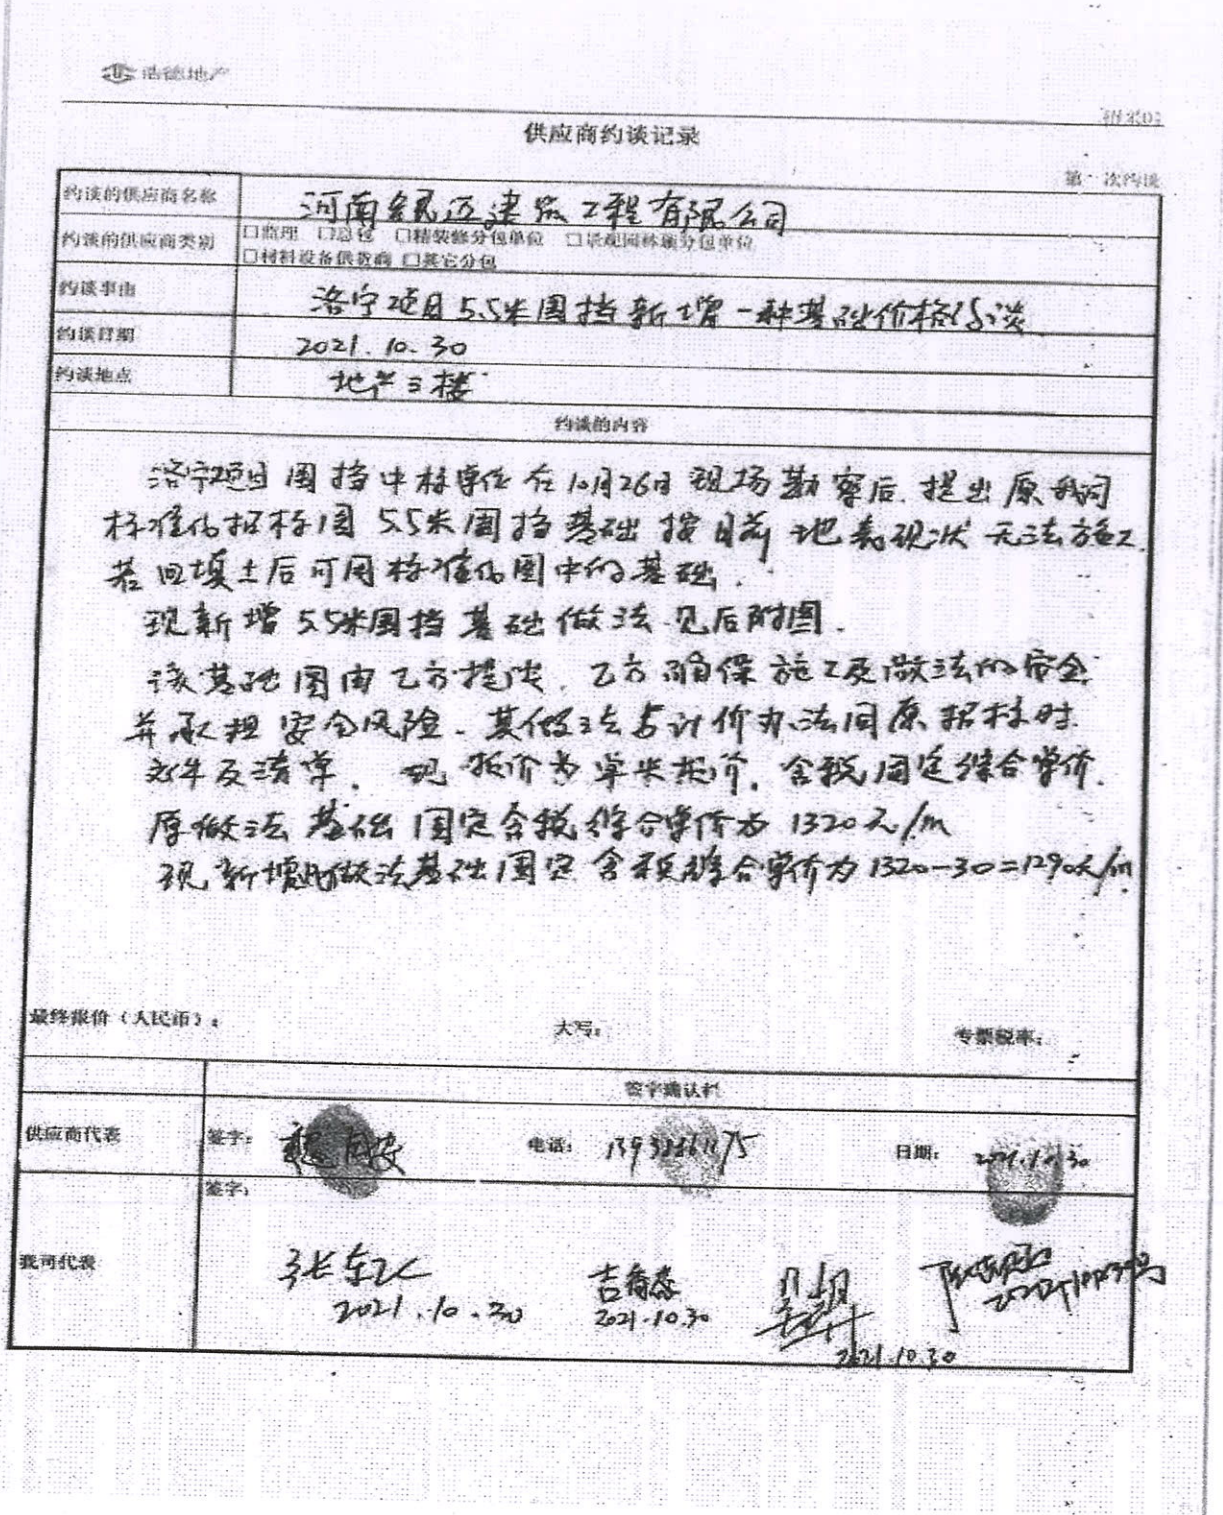 浩德地产
供应商约谈记录
第 次约谈
约谈的供应商名称 河南 建筑工程有限公司
约谈的供应商类别 □监理 □总包 □精装修分包单位 □景观园林类分包单位
□材料设备供货商 □其它分包
约谈事由 洛宁项目5.5米围挡新增一种基础价格约谈
约谈日期 2021.10.30
约谈地点 地产三楼
约谈的内容
洛宁项目围挡中标单位在10月26日现场勘察后,提出原我司
标准化招标图5.5米围挡基础按目前地表现状无法施工.
若回填土后可用标准化图中的基础.
现新增5.5米围挡基础做法见后附图.
该基础图由乙方提供,乙方确保施工及做法的安全
并承担安全风险.其做法与计价办法同原招标时
文件及清单. 现报价为单米报价,含税固定综合单价.
原做法基础固定含税综合单价为1320元/m
现新增此做法基础固定含税综合单价为1320-30=1290元/m
最终报价(人民币): 大写: 专票税率:
签字确认栏
供应商代表 签字: 电话: 日期: 2021.10.30
签字:
我司代表
2021.10.30 2021.10.30
2021.10.30